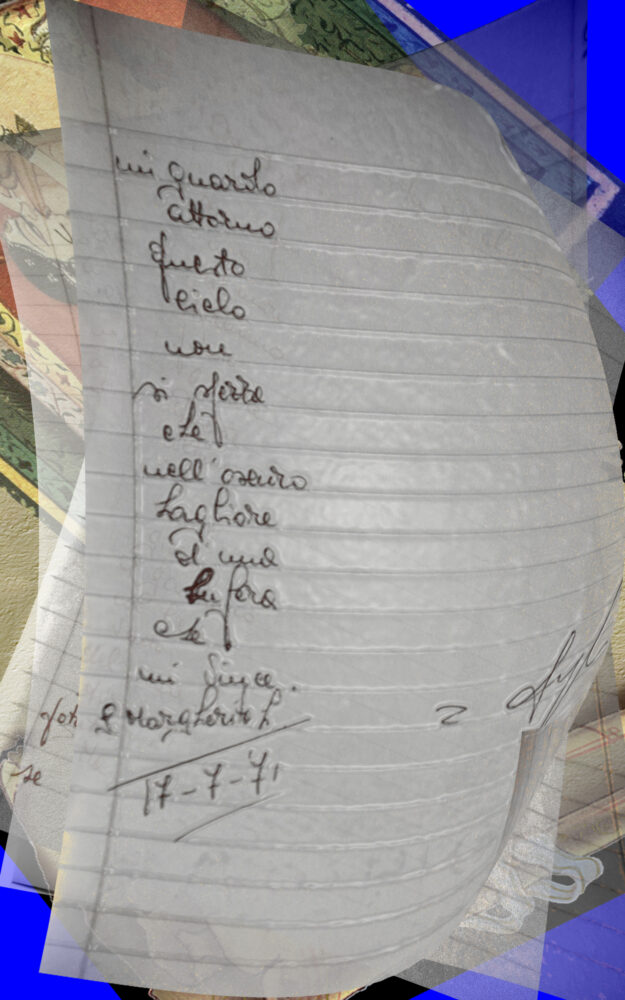 mi guardo
attorno
questo
cielo
non
si
che
nell'oscuro
bagliore
d'una
bufera
che
mi finge.
S Margherita L
17-7-71
se